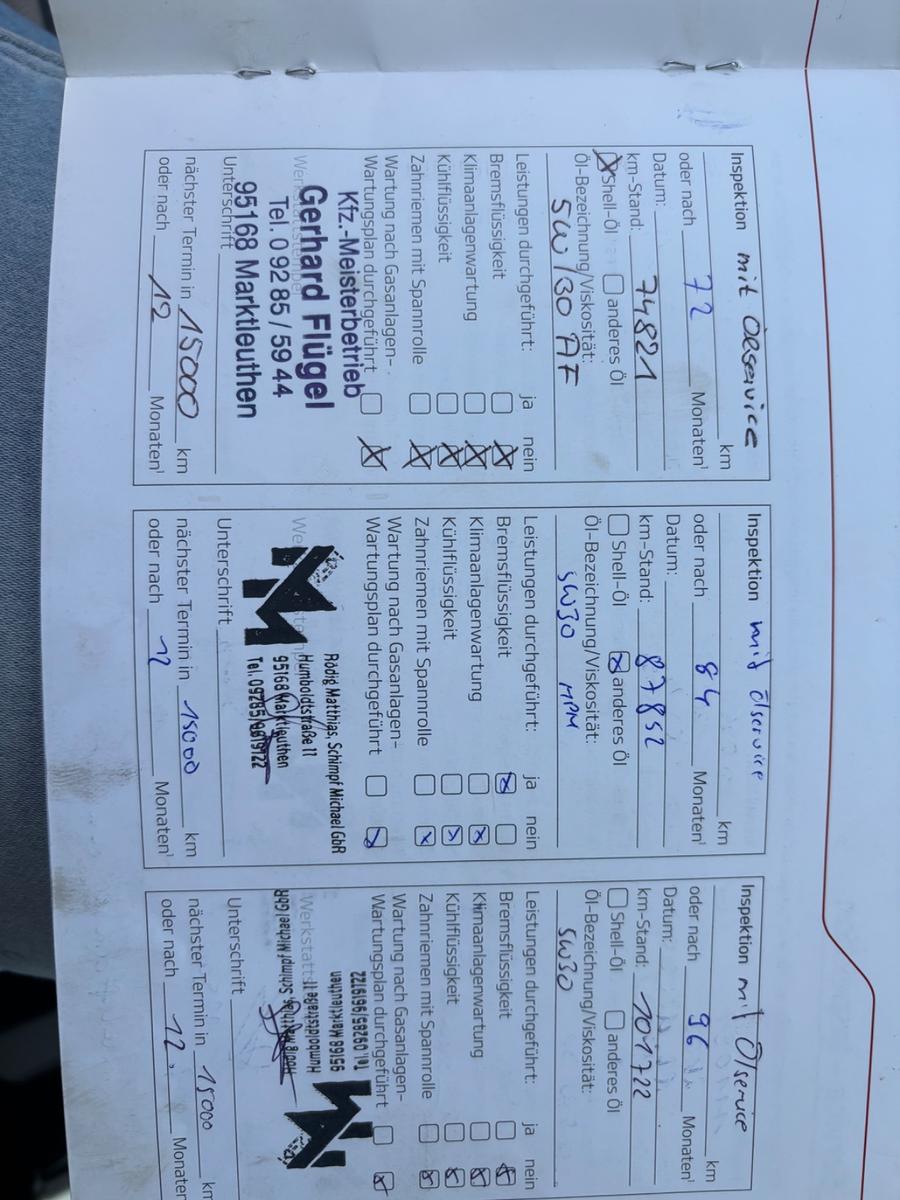 Inspektion mit Ölservice
km
oder nach 72 Monaten¹
Datum:
km-Stand: 74821
Shell-Öl anderes Öl
Öl-Bezeichnung/Viskosität:
5W/30 AF
Leistungen durchgeführt: ja nein
Bremsflüssigkeit
Klimaanlagenwartung
Kühlflüssigkeit
Zahnriemen mit Spannrolle
Wartung nach Gasanlagen-
Wartungsplan durchgeführt
Kfz.-Meisterbetrieb
Gerhard Flügel
Tel. 0 92 85 / 59 44
95168 Marktleuthen
Werkstattstempel
Unterschrift
nächster Termin in 15000 km
oder nach 12 Monaten¹
Inspektion mit Ölservice
km
oder nach 84 Monaten¹
Datum:
km-Stand: 87852
Shell-Öl anderes Öl
Öl-Bezeichnung/Viskosität:
5W30 MPM
Leistungen durchgeführt: ja nein
Bremsflüssigkeit
Klimaanlagenwartung
Kühlflüssigkeit
Zahnriemen mit Spannrolle
Wartung nach Gasanlagen-
Wartungsplan durchgeführt
Rödig Matthias, Schimpf Michael GbR
Humboldtstraße 11
95168 Marktleuthen
Tel. 09285/9619122
Unterschrift
nächster Termin in 15000 km
oder nach 12 Monaten¹
Inspektion mit Ölservice
km
oder nach 96 Monaten¹
Datum:
km-Stand: 101722
Shell-Öl anderes Öl
Öl-Bezeichnung/Viskosität:
5W30
Leistungen durchgeführt: ja nein
Bremsflüssigkeit
Klimaanlagenwartung
Kühlflüssigkeit
Zahnriemen mit Spannrolle
Wartung nach Gasanlagen-
Wartungsplan durchgeführt
Rödig Matthias, Schimpf Michael GbR
Humboldtstraße 11
95168 Marktleuthen
Tel. 09285/9619122
Unterschrift
nächster Termin in 15000 km
oder nach 12. Monaten